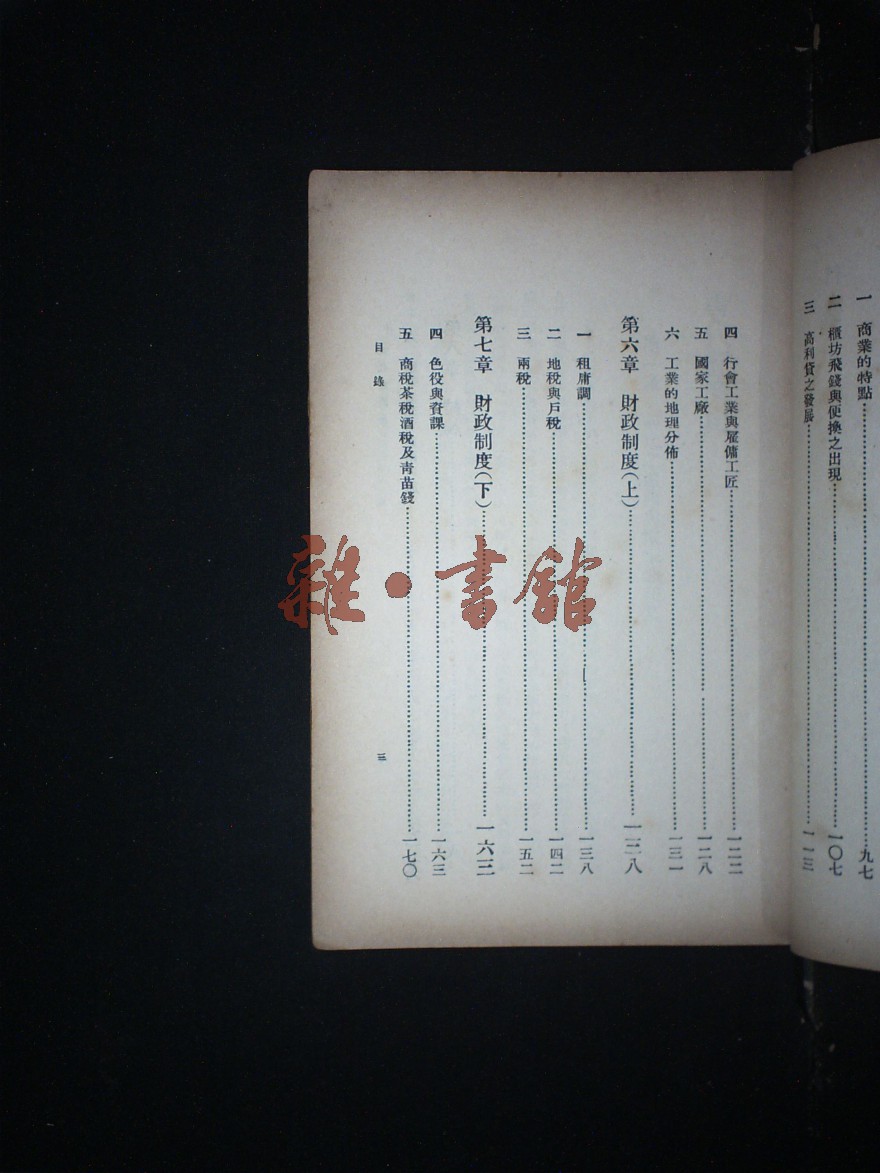 一　商業的特點……九七
二　櫃坊飛錢與便換之出現……一〇七
三　高利貸之發展……一一三
四　行會工業與雇傭工匠……一二二
五　國家工廠……一二八
六　工業的地理分佈……一三一
第六章　財政制度(上)……一三八
一　租庸調……一三八
二　地稅與戶稅……一四二
三　兩稅……一五二
第七章　財政制度(下)……一六三
四　色役與資課……一六三
五　商稅茶稅酒稅及青苗錢……一七〇
目錄
三
雜·書館